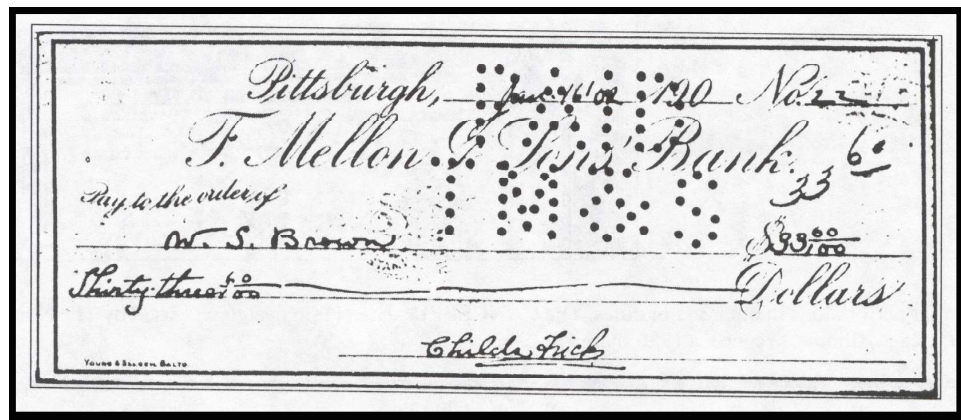 Pittsburgh, Jan 16 '02 190 No. 22
T. Mellon & Sons' Bank.
33
Pay to the order of
W. S. Brown $33 60/100
Thirty three 60/100 Dollars
Childs Frick
YOUNG & SELDEN BALTO